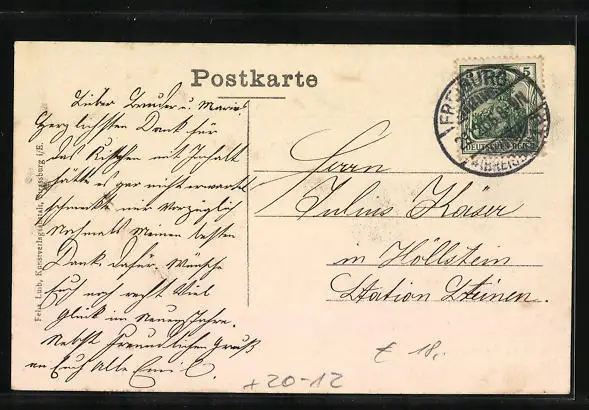 Postkarte
Lieber Bruder u. Marie!
Herzlichsten Dank für
das Kistchen mit Inhalt
hätte es gar nicht erwartet
schmeckte mir Vorzüglich
Nochmals Meinen besten
Dank. dafür Wünsche
Euch noch recht Viel
Glück im Neuen Jahre.
Nebst Freundlichen Gruß
an Euch Alle Emil.
Herrn
Julius Käser
in Höllstein
Station Steinen.
FREIBURG
(BREISGAU)
5
DEUTSCHES REICH
Felix Luib, Kunstverlagsanstalt, Strassburg i/E.
£ 18,-
+20-12